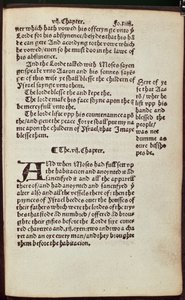 vii. Chapter. Fo. xiii.
ner which hath vowed his offerynge vnto ye
Lorde for his abstinence, besydes that his hā
de can gete And acordyng to the vowe which
he vowed euen so he must do in the lawe of his
abstinence.
And the Lorde talked with Moses sayen
ge: speake vnto Aaron and his sonnes saynge:
of this wise shall ye blesse the childern
of Ysrael saynge vnto them.
The lorde blesse the and kepe the.
The lorde make his face shyne apon the &
be mercyfull vnto the.
The lorde lifte vpp his countenaunce apō
the, and geue the peace. For ye shall put my na
me apon the childern of Ysrael, that I maye
blesse them.
Here of ye
se that Aa
ron
lift vpp his
hande and
blessed the
people
was not
domme as
oure bissho
pes be.
The .vii. Chapter.
AND when Moses had full sett vp
the habitacion and anoynted it ād
sanctifyed it and all the apparell
there of, and had anoynted and sanctifyed ye
alter also and all the vessels there of: then the
prynces of Ysrael heedes ouer the housses of
their fathers which were the lordes of the try
bes that stode and numbred, offered and brou
ghte their giftes before the Lorde sixe couered
charettes and .xii. oxen: two and two a cha
ret and an oxe euery man, and they broughte
them before the habitacion.